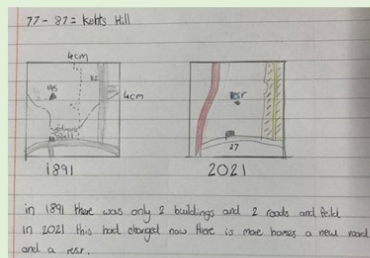 77 - 87 = Kohts Hill
4cm
4cm
1891
2021
27
in 1891 there was only 2 buildings and 2 roads and field
in 2021 this had changed now there is more homes a new road
and a resr.